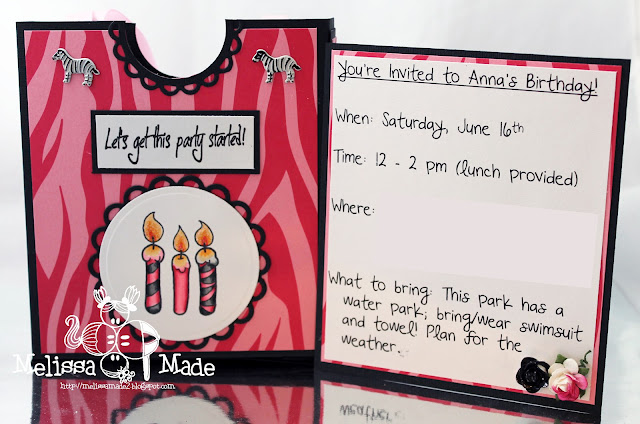 Let's get this party started!
You're Invited to Anna's Birthday!
When: Saturday, June 16th
Time: 12 - 2 pm (lunch provided)
Where:
What to bring: This park has a
water park; bring/wear swimsuit
and towel! Plan for the
weather.
Melissa Made
http://melissamade2.blogspot.com